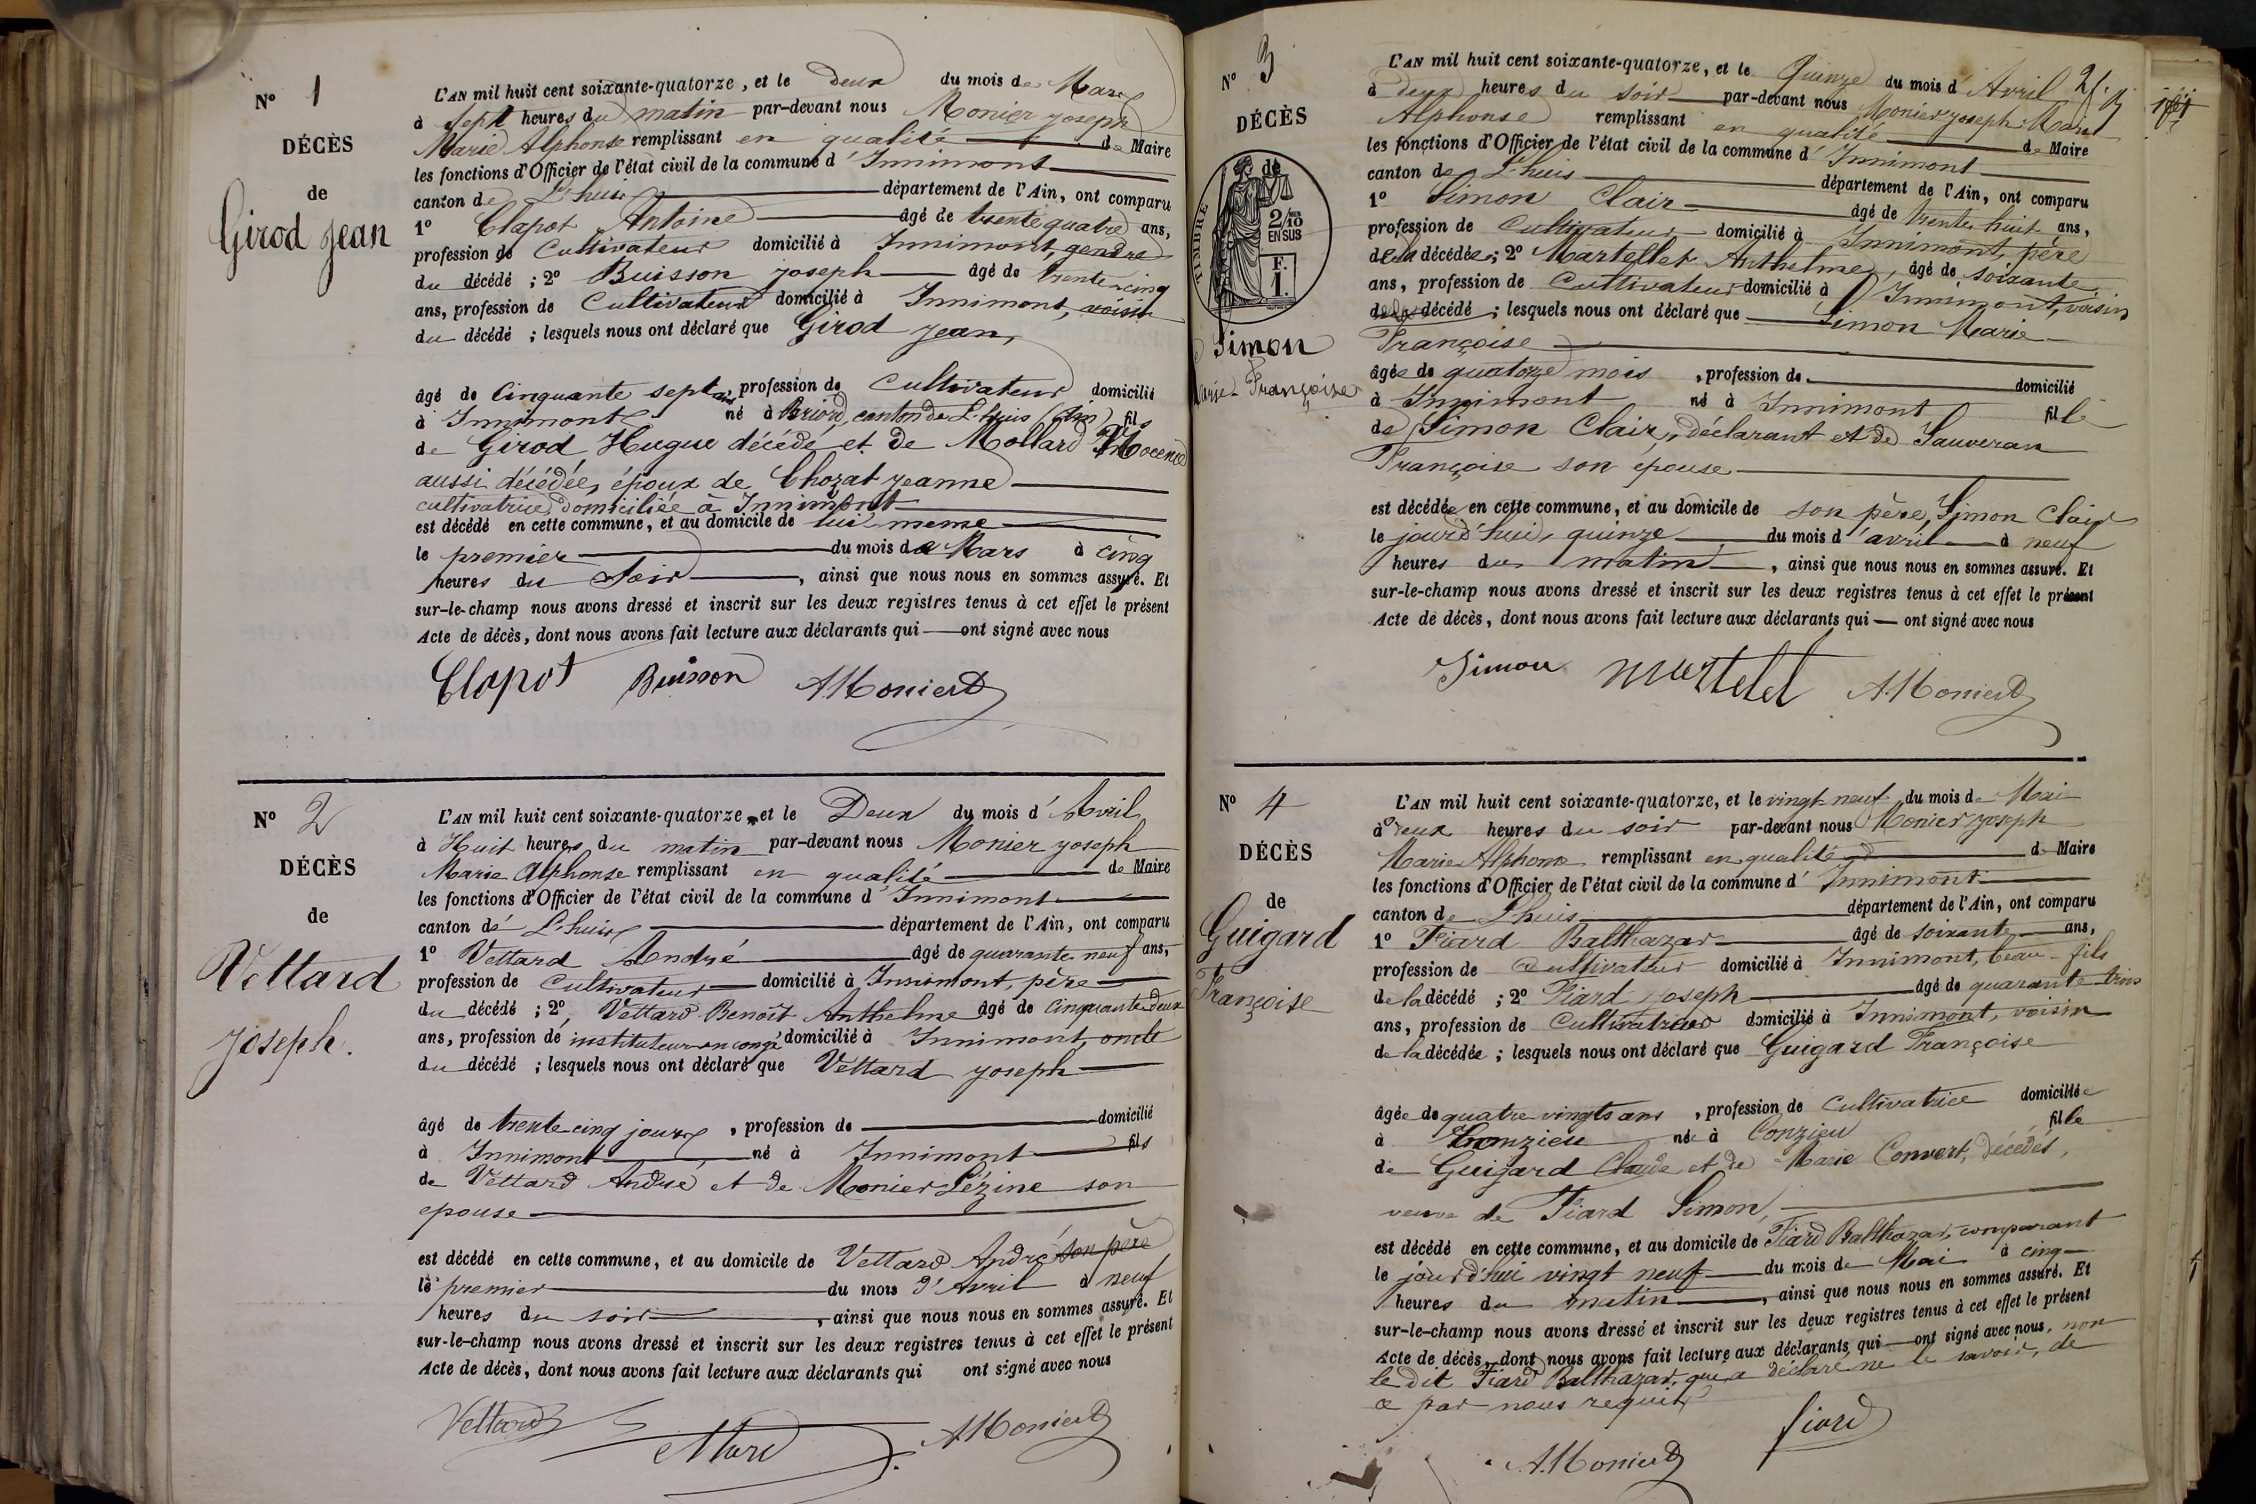 N° 1
DÉCÈS
de
Girod Jean
L'AN mil huit cent soixante-quatorze, et le Deux du mois de Mars
à Sept heures du matin par-devant nous Monier Joseph
Marie Alphonse remplissant en qualité de Maire
les fonctions d'Officier de l'état civil de la commune d'Innimont
canton de L'huis département de l'Ain, ont comparu
1° Clapot Antoine âgé de trente quatre ans,
profession de Cultivateur domicilié à Innimont, gendre
du décédé ; 2° Buisson Joseph âgé de trente cinq
ans, profession de Cultivateur domicilié à Innimont, voisin
du décédé ; lesquels nous ont déclaré que Girod Jean,
âgé de Cinquante sept ans, profession de Cultivateur domicilié
à Innimont né à Briord, canton de L'huis (Ain) fils
de Girod Hugue décédé et de Mollard
aussi décédée, époux de Chozat Jeanne
cultivatrice domiciliée à Innimont
est décédé en cette commune, et au domicile de lui meme
le premier du mois de Mars à cinq
heures du Soir, ainsi que nous nous en sommes assuré. Et
sur-le-champ nous avons dressé et inscrit sur les deux registres tenus à cet effet le présent
Acte de décès, dont nous avons fait lecture aux déclarants qui ont signé avec nous
Clapot Buisson A Monier
N° 2
DÉCÈS
de
Vettard
Joseph.
L'AN mil huit cent soixante-quatorze, et le Deux du mois d'Avril
à Huit heures du matin par-devant nous Monier Joseph
Marie Alphonse remplissant en qualité de Maire
les fonctions d'Officier de l'état civil de la commune d'Innimont
canton de L'huis département de l'Ain, ont comparu
1° Vettard André âgé de quarante neuf ans,
profession de Cultivateur domicilié à Innimont, père
du décédé ; 2° Vettard Benoit Anthelme âgé de Cinquante deux
ans, profession de instituteur en congé domicilié à Innimont, oncle
du décédé ; lesquels nous ont déclaré que Vettard Joseph
âgé de trente cinq jours, profession de domicilié
à Innimont né à Innimont fils
de Vettard André et de Monier Lézine son
epouse
est décédé en cette commune, et au domicile de Vettard André son père
le premier du mois d'Avril à neuf
heures du soir, ainsi que nous nous en sommes assuré. Et
sur-le-champ nous avons dressé et inscrit sur les deux registres tenus à cet effet le présent
Acte de décès, dont nous avons fait lecture aux déclarants qui ont signé avec nous
Vettard ettard A Monier
N° 3
DÉCÈS
de
TIMBRE
2/10
EN SUS
F.
1.
Simon
Marie Françoise
L'AN mil huit cent soixante-quatorze, et le Quinze du mois d'Avril
à deux heures du soir par-devant nous Monier Joseph Marie
Alphonse remplissant en qualité de Maire
les fonctions d'Officier de l'état civil de la commune d'Innimont
canton de L'huis département de l'Ain, ont comparu
1° Simon Clair âgé de trente huit ans,
profession de Cultivateur domicilié à Innimont, père
de la décédée ; 2° Martellet Anthelme, âgé de soixante
ans, profession de Cultivateur domicilié à Innimont, voisin
de la décédé ; lesquels nous ont déclaré que Simon Marie
Françoise
âgée de quatorze mois, profession de domicilié
à Innimont né à Innimont fille
de Simon Clair, déclarant et de Sauveran
Françoise son épouse
est décédée en cette commune, et au domicile de son père, Simon Clair
le jourd'hui, quinze du mois d'avril à neuf
heures du matin, ainsi que nous nous en sommes assuré. Et
sur-le-champ nous avons dressé et inscrit sur les deux registres tenus à cet effet le présent
Acte de décès, dont nous avons fait lecture aux déclarants qui ont signé avec nous
Simon Martelet A. Monier
N° 4
DÉCÈS
de
Guigard
Françoise
L'AN mil huit cent soixante-quatorze, et le vingt-neuf du mois de Mai
à deux heures du soir par-devant nous Monier Joseph
Marie Alphonse remplissant en qualité de Maire
les fonctions d'Officier de l'état civil de la commune d'Innimont
canton de L'huis département de l'Ain, ont comparu
1° Fiard Balthazar âgé de soixante ans,
profession de Cultivateur domicilié à Innimont, beau-fils
de la décédé ; 2° Fiard Joseph âgé de quarante trois
ans, profession de Cultivateur domicilié à Innimont, voisin
de la décédée ; lesquels nous ont déclaré que Guigard Françoise
âgée de quatre vingts ans, profession de Cultivatrice domiciliée
à Conzieu née à Conzieu fille
de Guigard Claude et de Marie Convert, décédés,
veuve de Fiard Simon,
est décédé en cette commune, et au domicile de Fiard Balthazar, comparant
le jourd'hui vingt neuf du mois de Mai à cinq
heures du matin, ainsi que nous nous en sommes assuré. Et
sur-le-champ nous avons dressé et inscrit sur les deux registres tenus à cet effet le présent
Acte de décès, dont nous avons fait lecture aux déclarants qui ont signé avec nous, non
le dit Fiard Balthazar, qui a déclaré ne le savoir, de
ce par nous requit
fiard
A. Monier